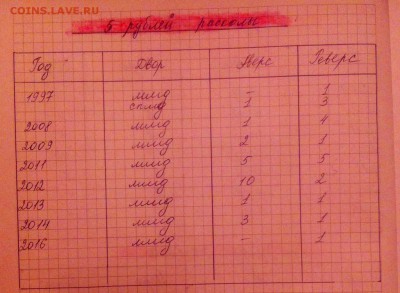 COINS.LAVE.RU
5 рублей расколы
Год Двор Аверс Реверс
1997 ммд - 1
спмд 1 3
2008 ммд 1 4
2009 ммд 2 1
2011 ммд 5 5
2012 ммд 10 2
2013 ммд 1 1
2014 ммд 3 1
2016 ммд - 1